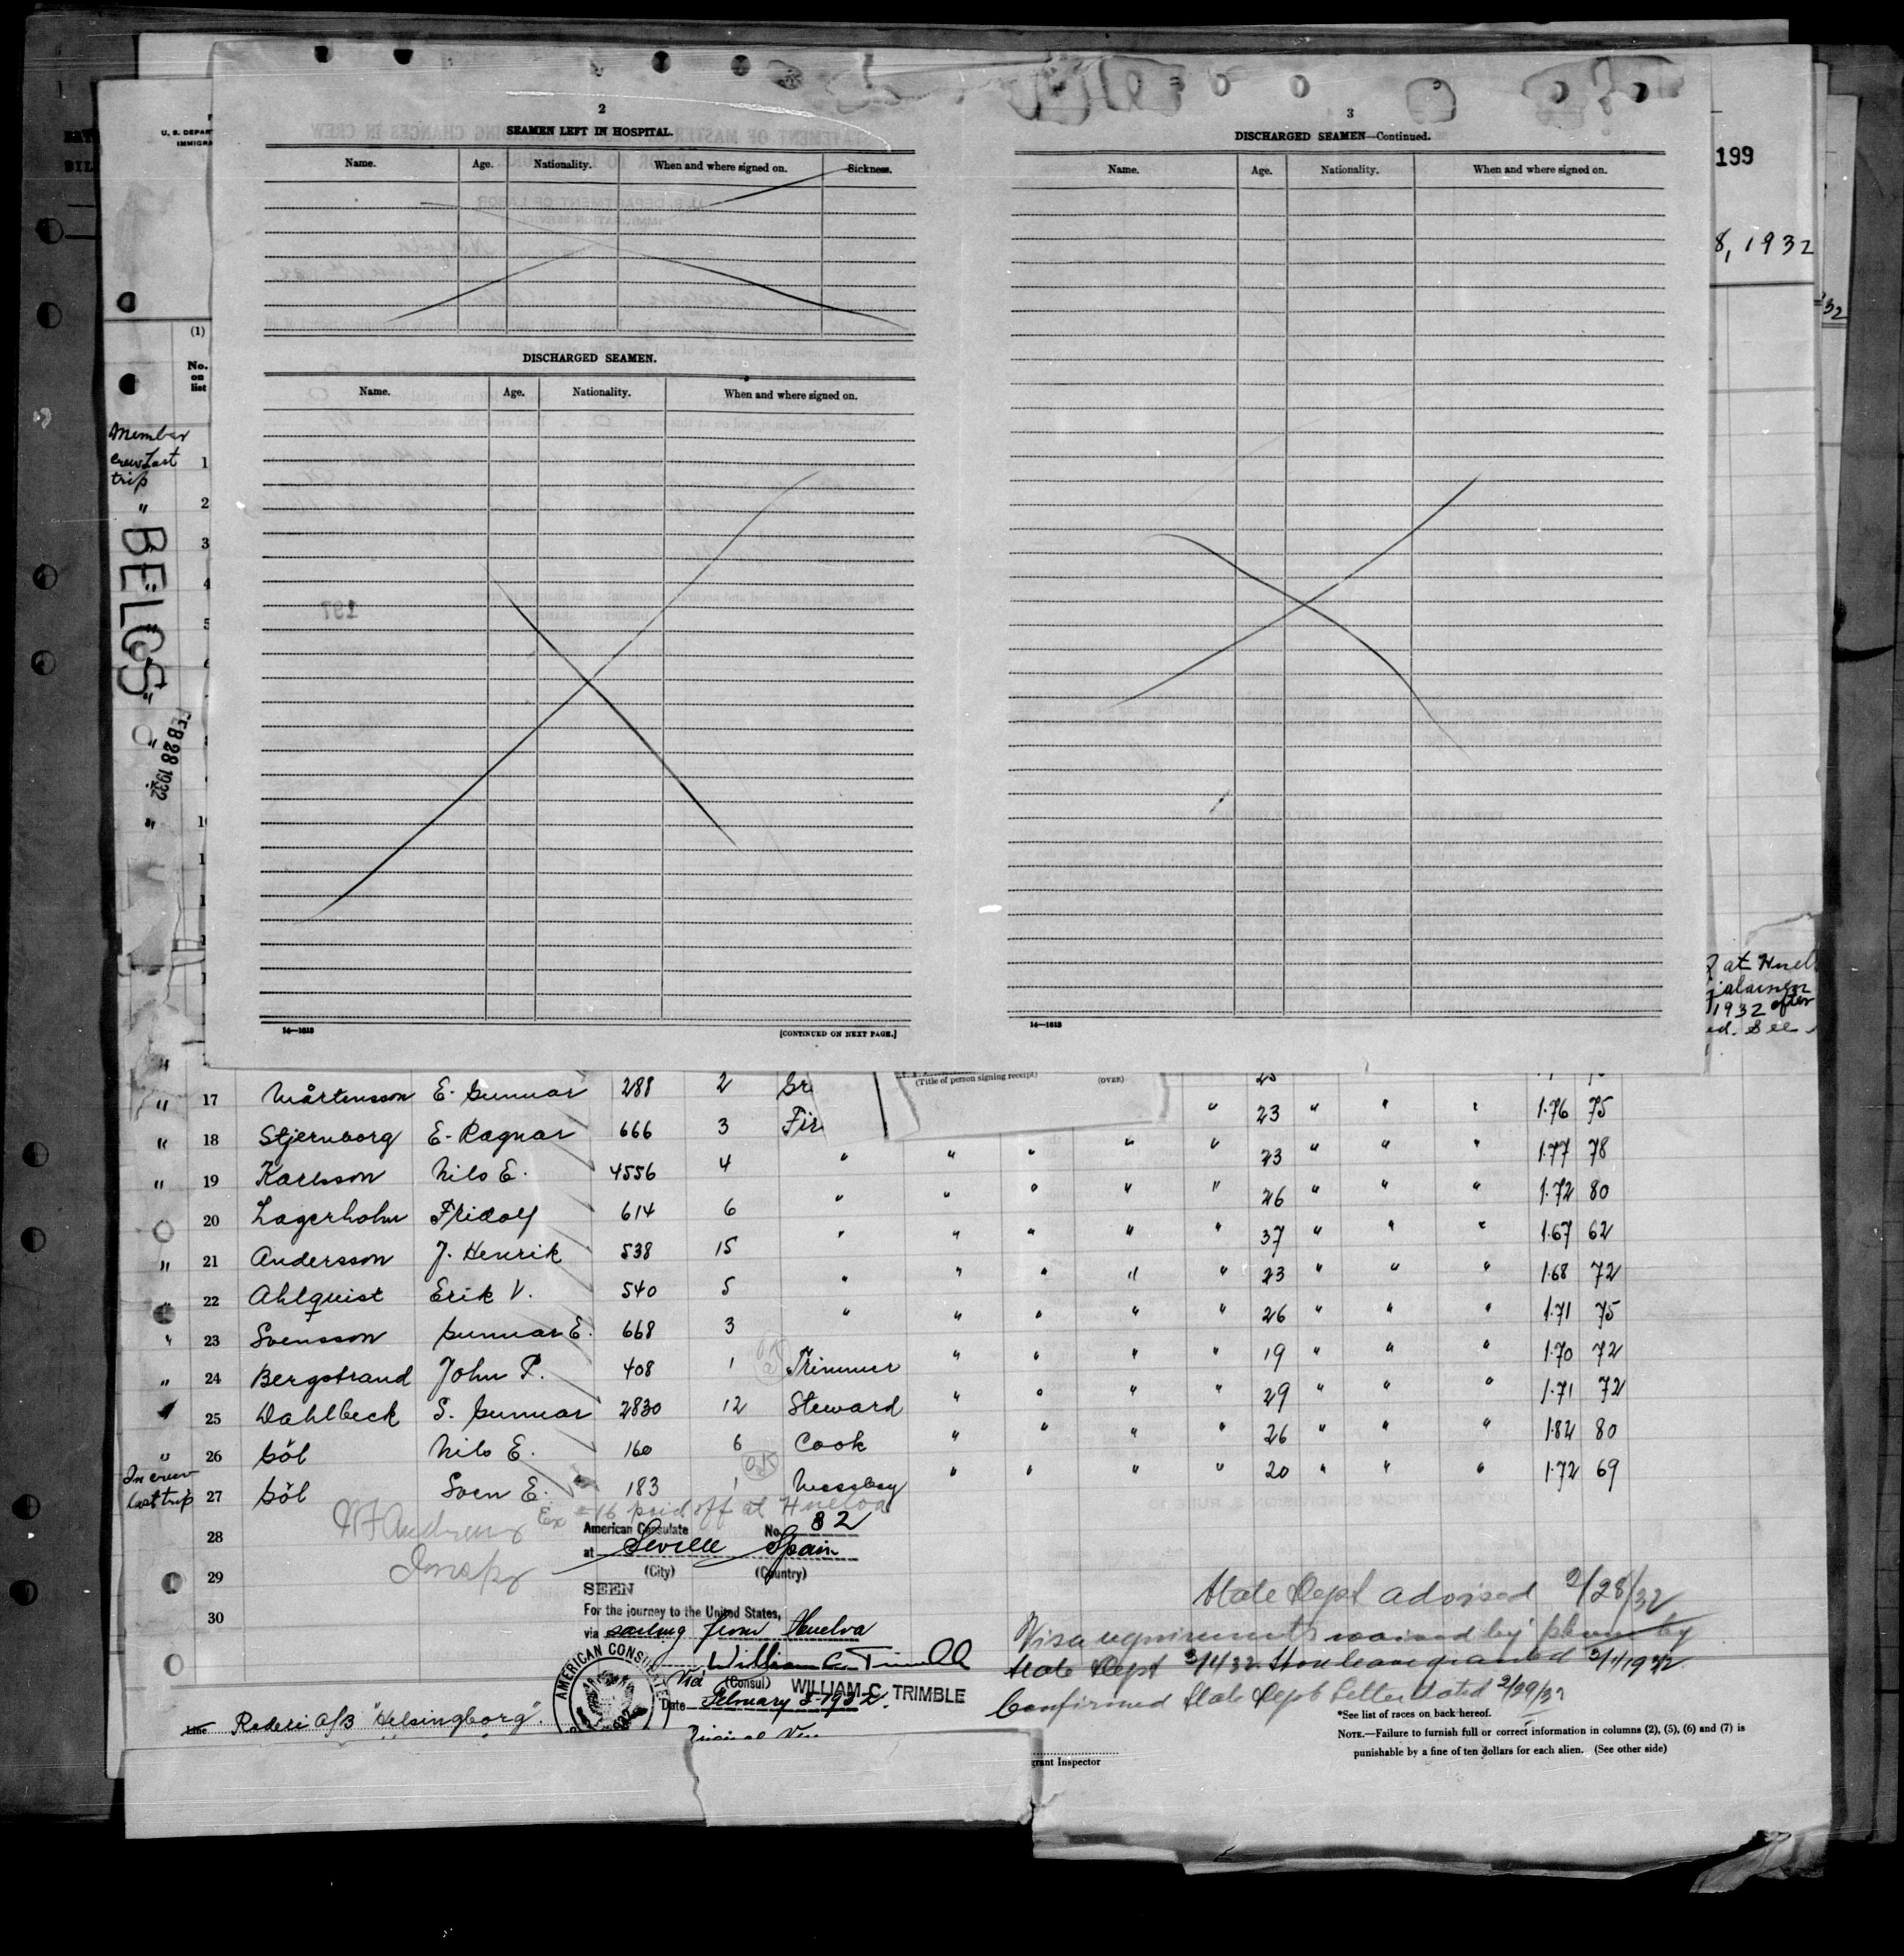 2
SEAMEN LEFT IN HOSPITAL.
Name. Age. Nationality. When and where signed on. Sickness.
DISCHARGED SEAMEN.
Name. Age. Nationality. When and where signed on.
14—1613
[CONTINUED ON NEXT PAGE.]
3
DISCHARGED SEAMEN—Continued.
Name. Age. Nationality. When and where signed on.
14—1613
199
8, 1932
32
U. S. DEPAR
IMMIGRA
(1)
No. on list
Member
crew Last
trip
1
" 2
3
4
5
BELGS
FEB 28 1932
at Huel
1932 after
ed. See
(Title of person signing receipt)
(OVER)
" 17 Mårtensson E. Gunnar 288 2 Gr
" 18 Stjernborg E. Ragnar 666 3 Fir " 23 " " " 1.76 75
" 19 Karlsson Nils E. 4556 4 " " " " " 23 " " " 1.77 78
20 Lagerholm Fridolf 614 6 " " " " " 26 " " " 1.72 80
" 21 Andersson J. Henrik 538 15 " " " " " 37 " " " 1.67 62
" 22 Ahlquist Erik V. 540 5 " " " " " 23 " " " 1.68 72
" 23 Svensson Gunnar E. 668 3 " " " " " 26 " " " 1.71 75
" 24 Bergstrand John P. 408 1 Trimmer " " " " 19 " " " 1.70 72
25 Dahlbeck S. Gunnar 2830 12 Steward " " " " 29 " " " 1.71 72
" 26 Göl Nils E. 160 6 Cook " " " " 26 " " " 1.82 80
In crew last trip 27 Göl Sven E. 183 1 Messboy " " " " 20 " " " 1.72 69
Ex #16 paid off at Huelva
28
29
30
American Consulate No. 82
at Seville Spain
(City) (Country)
SEEN
For the journey to the United States,
via sailing from Huelva
William C. Trimble
(Consul) WILLIAM C. TRIMBLE
Date February 3-1932.
AMERICAN CONSULATE
State Dept advised 2/28/32
Visa requirements waived by phone by
State Dept 3/1/32. Shore leave granted 3/1/1932
Confirmed State Dept Letter dated 2/29/32
*See list of races on back hereof.
NOTE.—Failure to furnish full or correct information in columns (2), (5), (6) and (7) is
punishable by a fine of ten dollars for each alien. (See other side)
Line Rederi A/B "Helsingborg".
grant Inspector